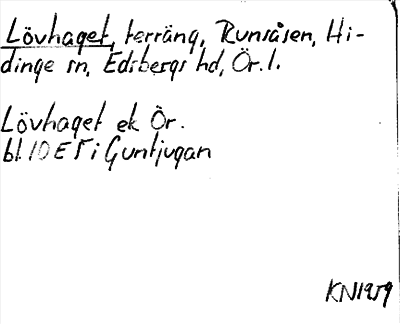 Lövhaget, terräng, Runsåsen, Hi-
dinge sn, Edsbergs hd, Ör. l.
Lövhaget ek Ör.
bl. 10 E f i Guntjugan
KN1959